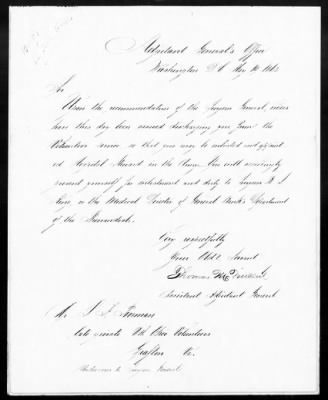 Adjutant General's Office
Washington D C May 10 1862
Sir
Upon the recommendation of the Surgeon General, orders
have this day been issued discharging you from the
Volunteer service so that you may be enlisted and appoint
ed Hospital Steward in the Army. You will accordingly
present yourself for enlistment and duty to Surgeon W S
King, or the Medical Director of General Banks's Department
of the Shenandoah.
Very respectfully
Your Obdt. Servant
Thomas M Vincent
Assistant Adjutant General
Mr
late private 8th Ohio Volunteers
Grafton Va.
to Surgeon General